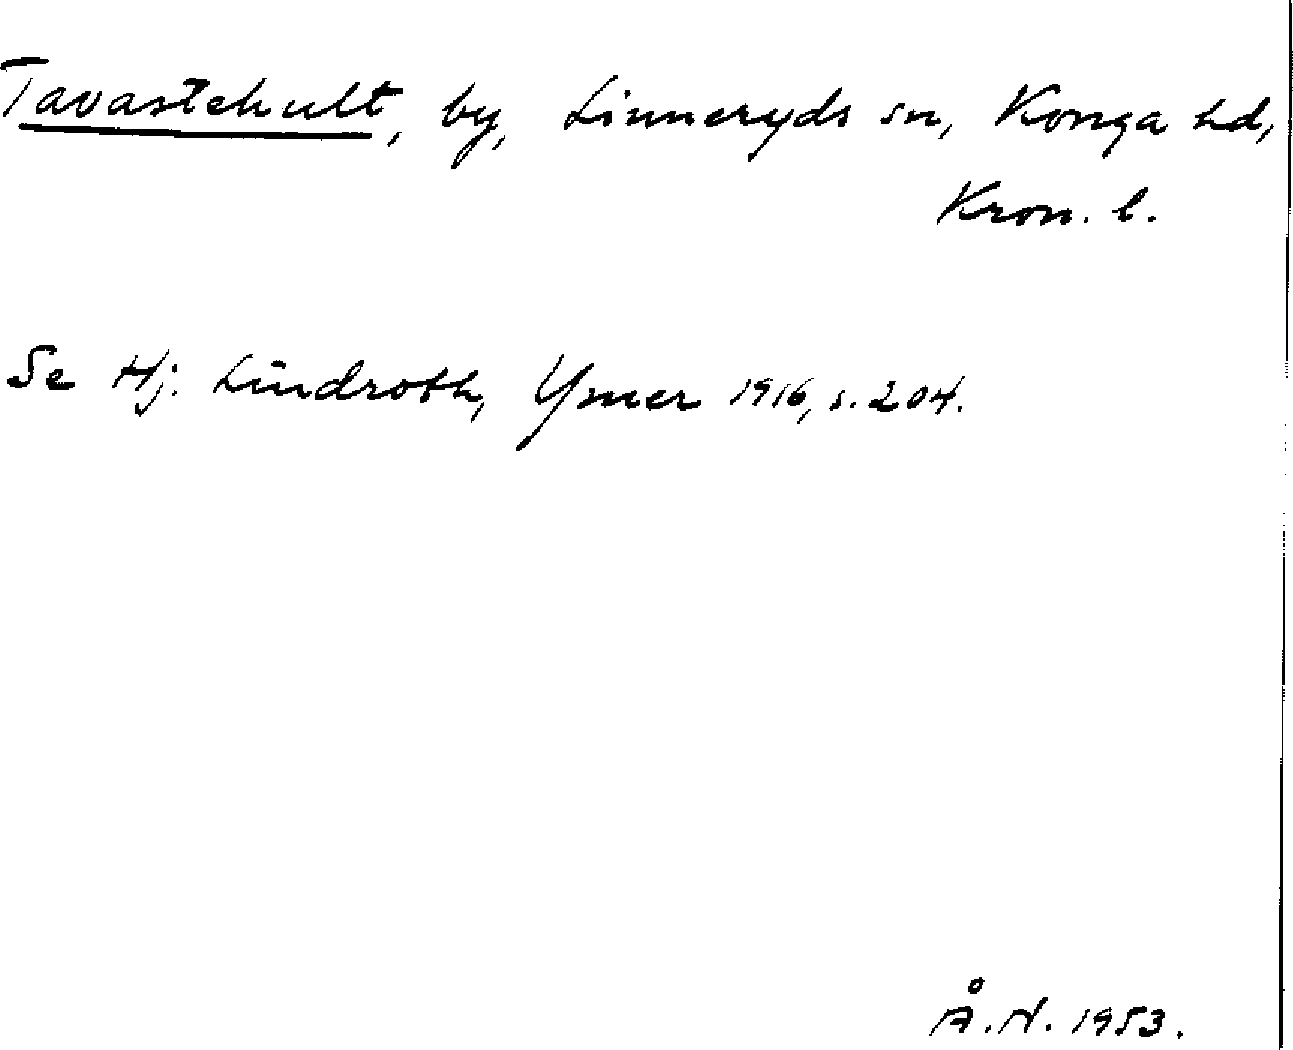 Tavastehult, by, Linneryds sn, Konga hd,
Kron. l.
Se Hj. Lindroth, Ymer 1916, s. 204.
Å. N. 1953.